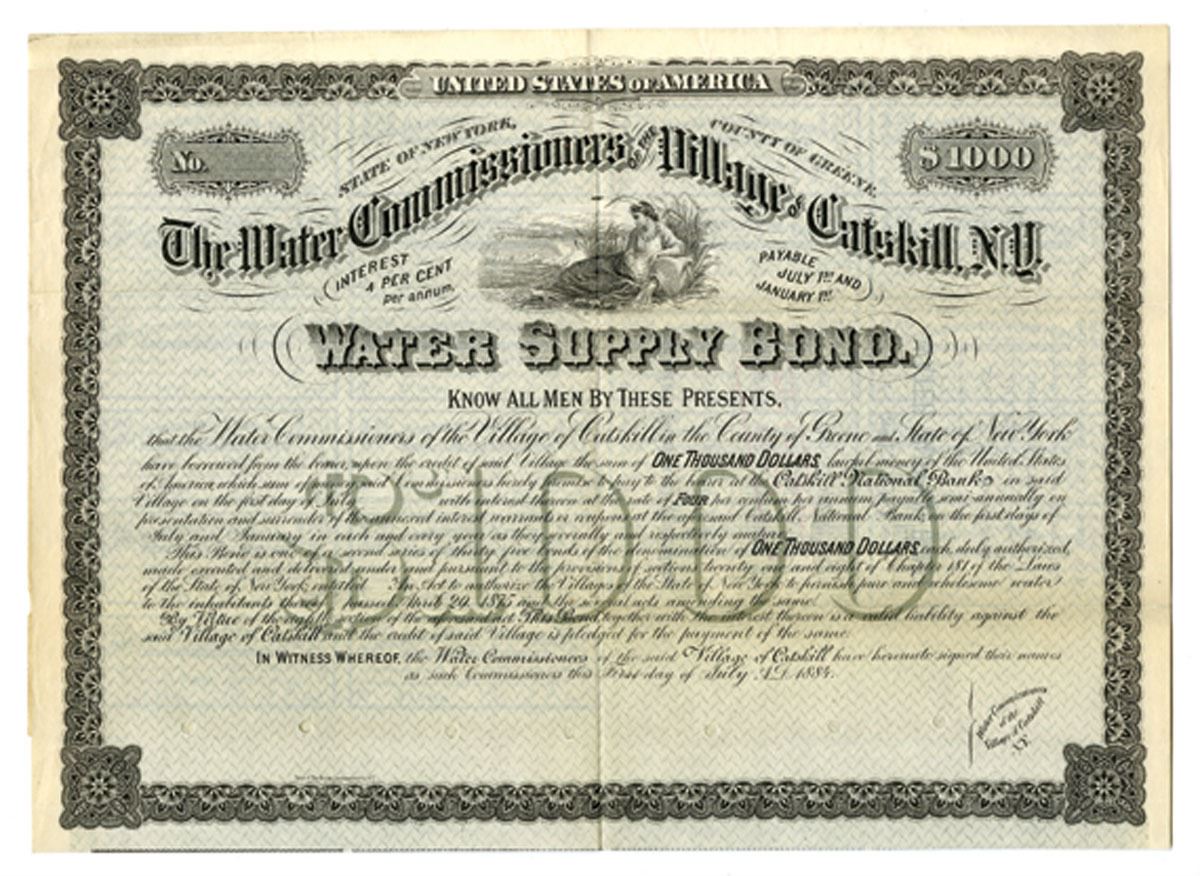 UNITED STATES OF AMERICA
No.
STATE OF NEW YORK,
COUNTY OF GREENE
$1000
The Water Commissioners OF THE Village OF Catskill, N.Y.
INTEREST
4 PER CENT
per annum.
PAYABLE
JULY 1ST AND
JANUARY 1ST
WATER SUPPLY BOND.
KNOW ALL MEN BY THESE PRESENTS,
that the Water Commissioners of the Village of Catskill in the County of Greene and State of New York
have borrowed from the bearer, upon the credit of said Village the sum of ONE THOUSAND DOLLARS, lawful money of the United States
of America, which sum of money said Commissioners hereby promise to pay to the bearer at the Catskill National Bank, in said
Village on the first day of July with interest thereon at the rate of FOUR per centum per annum, payable semi-annually on
presentation and surrender of the annexed interest warrants or coupons at the aforesaid Catskill National Bank on the first days of
July and January in each and every year as they severally and respectively mature.
This Bond is one of a second series of thirty five bonds of the denomination of ONE THOUSAND DOLLARS, each, duly authorized,
made executed and delivered under and pursuant to the provisions of section twenty one and eight of Chapter 181 of the Laws
of the State of New York, entitled An Act to authorize the Villages of the State of New York to furnish pure and wholesome water
to the inhabitants thereof passed 1875 and the several acts amending the same.
By Virtue of the eighth section of the This Bond together with the interest thereon is a valid liability against the
said Village of Catskill and the credit of said Village is pledged for the payment of the same.
IN WITNESS WHEREOF, the Water Commissioners of the said Village of Catskill have hereunto signed their names
as such Commissioners this First day of July A.D. 1884.
$1000
Water Commissioners
of the
Village of Catskill
N.Y.